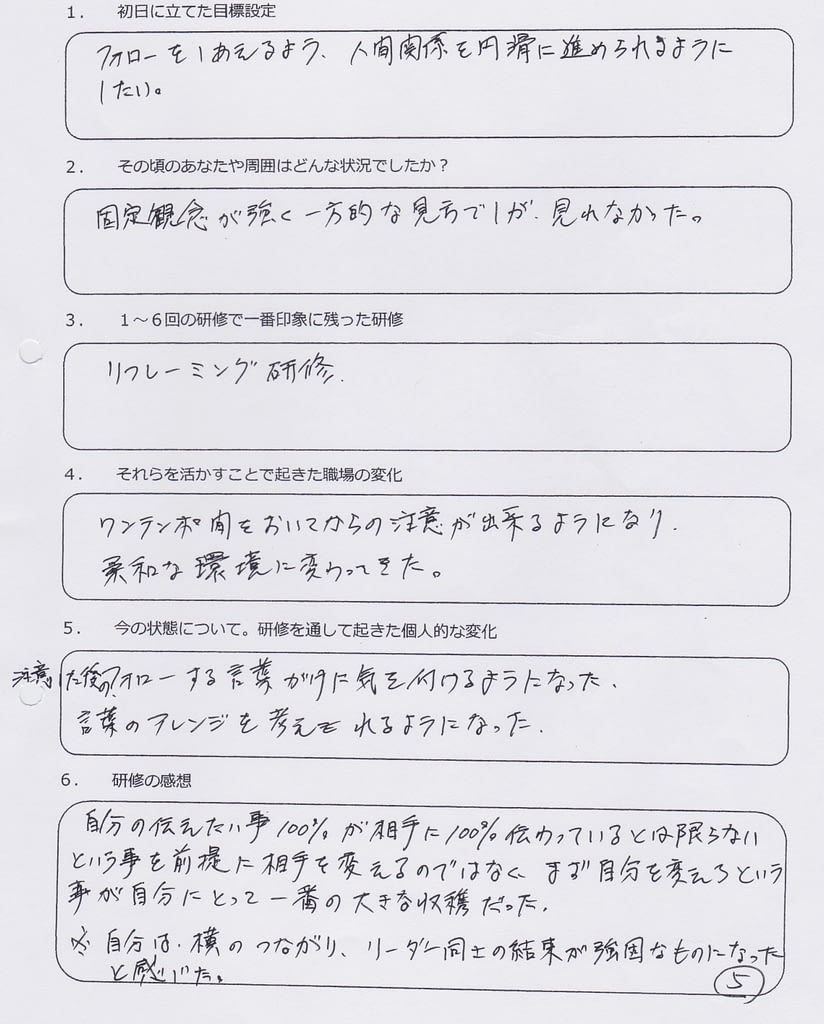 1． 初日に立てた目標設定
フォローをしあえるよう、人間関係を円滑に進められるように
したい。
2． その頃のあなたや周囲はどんな状況でしたか？
固定観念が強く一方的な見方でしか、見れなかった。
3． 1～6回の研修で一番印象に残った研修
リフレーミング研修.
4． それらを活かすことで起きた職場の変化
ワンテンポ間をおいてからの注意が出来るようになり.
柔和な環境に変わってきた。
5． 今の状態について。研修を通して起きた個人的な変化
注意した後のフォローする言葉がけに気を付けるようになった.
言葉のアレンジを考えてれるようになった.
6． 研修の感想
自分の伝えたい事100%が相手に100%伝わっているとは限らない
という事を前提に相手を変えるのではなく、まず自分を変えろという
事が自分にとって一番の大きな収穫だった.
※自分は、横のつながり、リーダー同士の結束が強固なものになった
と感じた。
5